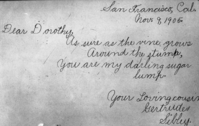 San Francisco, Cal.
Nov. 8, 1906
Dear Dorothy
As sure as the vine grows
Around the stump,
You are my darling sugar
lump.
Your Loving cousin
Gertrude
Sibley.